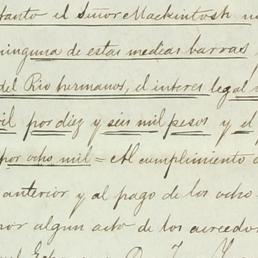 tanto el Señor Mackintosh n
ninguna de estas medias barras
del Rio hermanos, el interes legal
il por diez y seis mil pesos y el p
por ocho mil = Al cumplimiento
anterior y al pago de los ocho
por algun acto de los acreedo